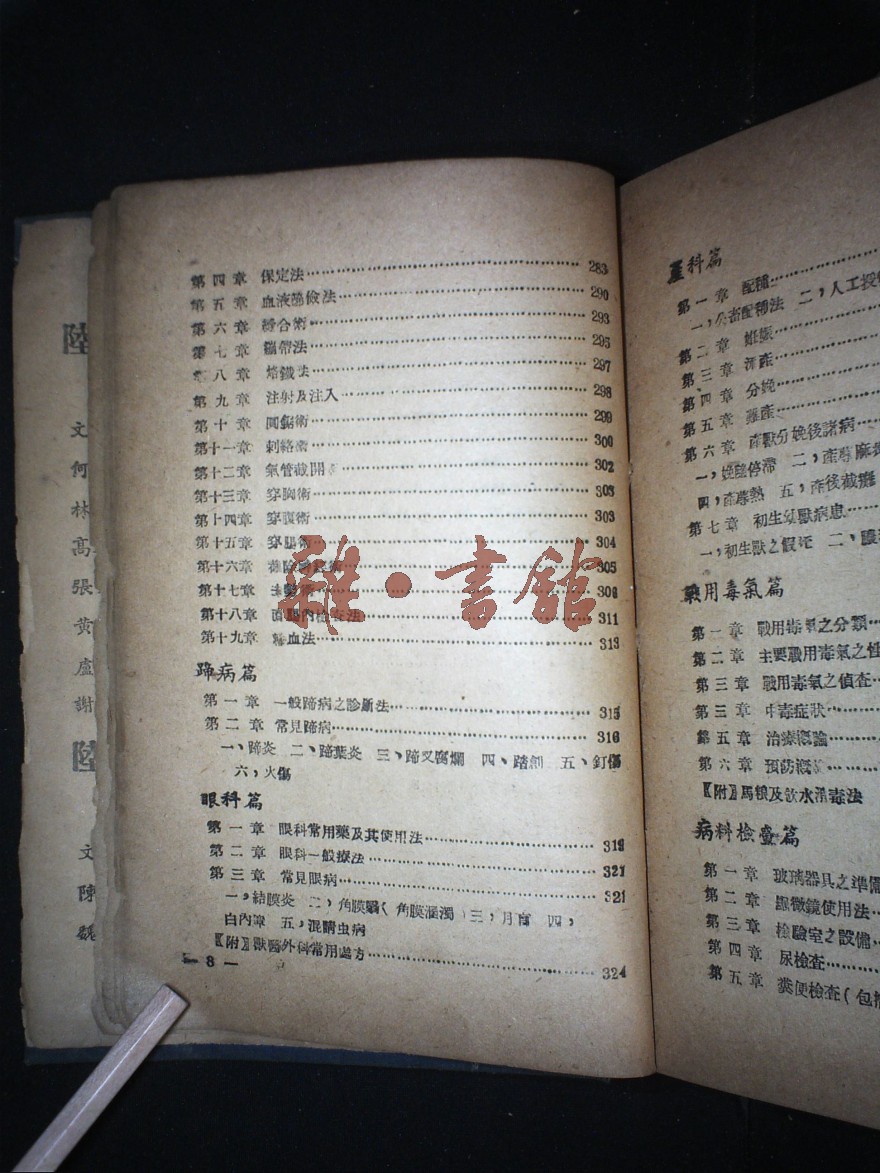 陸
文
何
林
高
張
黃
盧
謝
陸
文
陳
魏
第四章 保定法 283
第五章 血液 法 290
第六章 縫合術 293
第七章 繃帶法 295
第八章 烙鐵法 297
第九章 注射及注入 298
第十章 圓鋸術 299
第十一章 刺絡術 300
第十二章 氣管截開 302
第十三章 穿胸術 303
第十四章 穿腹術 303
第十五章 穿腸術 304
第十六章 術 305
第十七章 去勢術 308
第十八章 直腸內檢查法 311
第十九章 輸血法 313
蹄病篇
第一章 一般蹄病之診斷法 315
第二章 常見蹄病 316
一、蹄炎 二、蹄葉炎 三、蹄叉腐爛 四、踏創 五、釘傷
六，火傷
眼科篇
第一章 眼科常用藥及其使用法 319
第二章 眼科一般療法 321
第三章 常見眼病 321
一，結膜炎 二，角膜翳（角膜溷濁）三，月盲 四，
白內障 五，混睛虫病
【附】獸醫外科常用處方 324
— 8 —
產科篇
第一章 配種
一，公畜配種法 二，人工授
第二章 妊娠
第三章 流產
第四章 分娩
第五章 難產
第六章 產獸分娩後諸病
一，娩隨停滯 二，產蓐麻
四，產蓐熱 五，產後截癱
第七章 初生幼獸病患
一，初生獸之假死 二，
戰用毒氣篇
第一章 戰用毒氣之分類
第二章 主要戰用毒氣之性
第三章 戰用毒氣之偵查
第三章 中毒症狀
第五章 治療概論
第六章 預防概
【附】馬糧及飲水消毒法
病料檢查篇
第一章 玻璃器具之準備
第二章 顯微鏡使用法
第三章 檢驗室之設備
第四章 尿檢查
第五章 糞便檢查（包
雜·書館